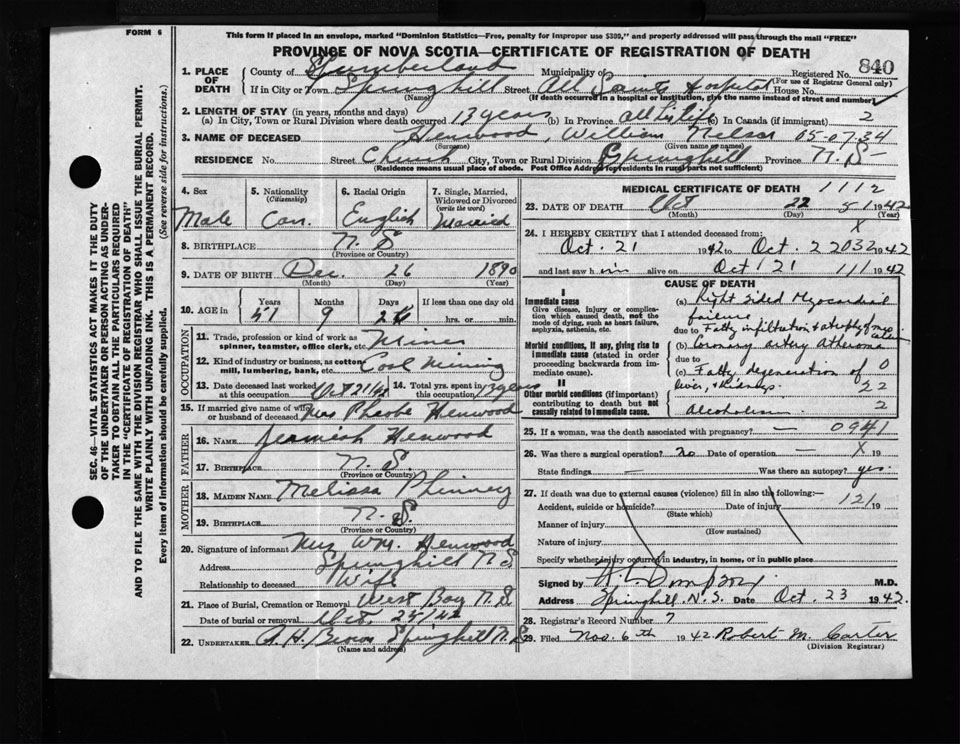 FORM 6
This form if placed in an envelope, marked "Dominion Statistics—Free, penalty for improper use $300," and properly addressed will pass through the mail "FREE"
PROVINCE OF NOVA SCOTIA—CERTIFICATE OF REGISTRATION OF DEATH
840
1. PLACE OF DEATH
County of Cumberland Municipality of Registered No.
(For use of Registrar General only)
If in City or Town Springhill Street All Saints Hospital House No.
(Name) (If death occurred in a hospital or institution, give the name instead of street and number)
2. LENGTH OF STAY (in years, months and days)
(a) In City, Town or Rural Division where death occurred 13 years (b) In Province all his life (c) In Canada (if immigrant) 2
3. NAME OF DECEASED Henwood, William Nelson 05-07.34
(Surname) (Given name or names)
RESIDENCE No. Street Church City, Town or Rural Division Springhill Province N.S-
(Residence means usual place of abode. Post Office Address for residents in rural parts not sufficient)
SEC. 46—VITAL STATISTICS ACT MAKES IT THE DUTY
OF THE UNDERTAKER OR PERSON ACTING AS UNDER-
TAKER TO OBTAIN ALL THE PARTICULARS REQUIRED
IN THE "CERTIFICATE OF REGISTRATION OF DEATH"
AND TO FILE THE SAME WITH THE DIVISION REGISTRAR WHO SHALL ISSUE THE BURIAL PERMIT.
WRITE PLAINLY WITH UNFADING INK. THIS IS A PERMANENT RECORD.
Every item of Information should be carefully supplied. (See reverse side for instructions.)
4. Sex 5. Nationality (Citizenship) 6. Racial Origin 7. Single, Married, Widowed or Divorced (write the word)
Male Can. English Married
8. BIRTHPLACE N.S
(Province or Country)
9. DATE OF BIRTH Dec. 26 1890
(Month) (Day) (Year)
10. AGE Years Months Days If less than one day old
51 9 26 hrs. or min.
OCCUPATION
11. Trade, profession or kind of work as spinner, teamster, office clerk, etc. Miner
12. Kind of industry or business, as cotton mill, lumbering, bank, etc. Coal Mining
13. Date deceased last worked at this occupation Oct 21/42 14. Total yrs. spent in this occupation 13 years
15. If married give name of wife or husband of deceased Mrs Phoebe Henwood
FATHER
16. NAME Jeremiah Henwood
17. BIRTHPLACE N.S.
(Province or Country)
MOTHER
18. MAIDEN NAME Melissa Phinney
19. BIRTHPLACE N.S.
(Province or Country)
20. Signature of informant Mrs Wm. Henwood
Address Springhill N.S
Relationship to deceased Wife
21. Place of Burial, Cremation or Removal West Bay N.S.
Date of burial or removal Oct. 25/42
22. UNDERTAKER A.H. Brown Springhill N.S
(Name and address)
MEDICAL CERTIFICATE OF DEATH 1112
23. DATE OF DEATH Oct 22 51 1942
(Month) (Day) (Year)
X
24. I HEREBY CERTIFY that I attended deceased from:
Oct. 21 1942 to Oct. 2 2032 1942
and last saw him alive on Oct 21 111 1942
CAUSE OF DEATH
I
Immediate cause
Give disease, injury or complication which caused death, not the mode of dying, such as heart failure, asphyxia, asthenia, etc.
(a) Right Sided Myocardial
failure
due to Fatty infiltration & atrophy of
Morbid conditions, if any, giving rise to immediate cause (stated in order proceeding backwards from immediate cause).
(b) Coronary artery Atheroma
due to
(c) Fatty degeneration of 0
liver, & kidneys 22
II
Other morbid conditions (if important) contributing to death but not causally related to immediate cause.
Alcoholism 2
25. If a woman, was the death associated with pregnancy? — 0941
26. Was there a surgical operation? no Date of operation — X 19
State findings — Was there an autopsy? yes.
27. If death was due to external causes (violence) fill in also the following:—
Accident, suicide or homicide? Date of injury 121 19
(State which)
Manner of injury
(How sustained)
Nature of injury
Specify whether injury occurred in industry, in home, or in public place
Signed by M.D.
Address Springhill. N.S. Date Oct. 23 1942.
28. Registrar's Record Number 7
29. Filed Nov. 6th 1942 Robert M. Carter
(Division Registrar)